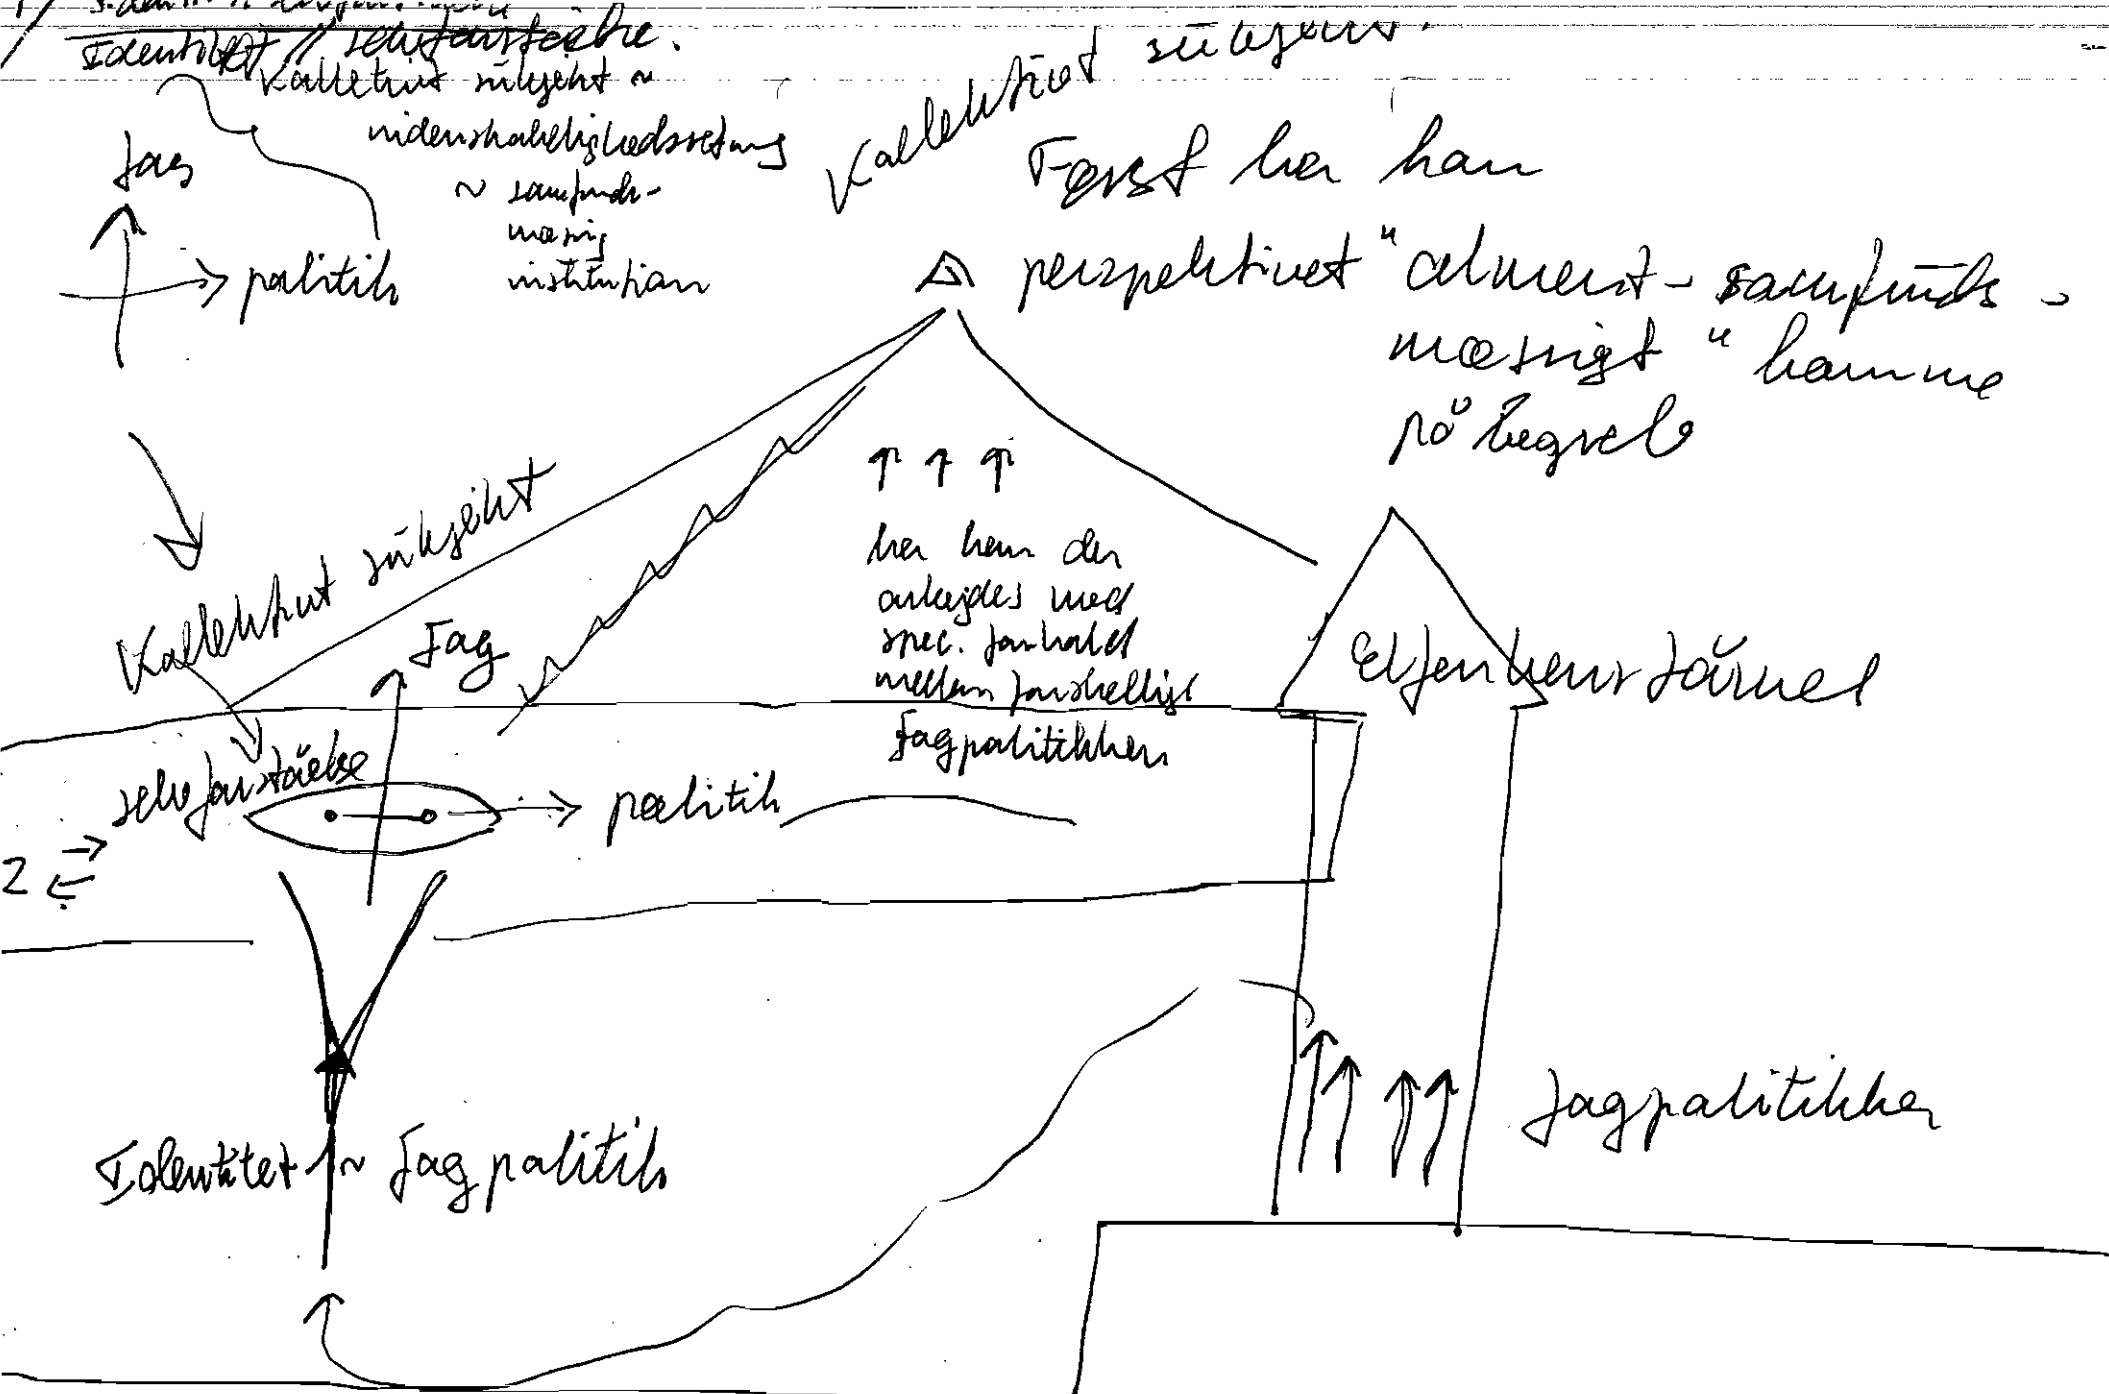 Identitet // selvforståelse.
Kollektivt subjekt ~
videnskabelighedsretning
~ samfunds-
mæssig
institution
Fag
politik
Kollektivt subjekt.
Først her kan
perspektivet "alment-samfunds-
mæssigt" komme
på begreb
Kollektivt subjekt
Fag
her kan der
arbejdes med
spec. forhold
mellem forskellige
fagpolitikker
Elfenbenstårnet
selvforståelse
politik
2
Identitet ~ fagpolitik
fagpolitikker